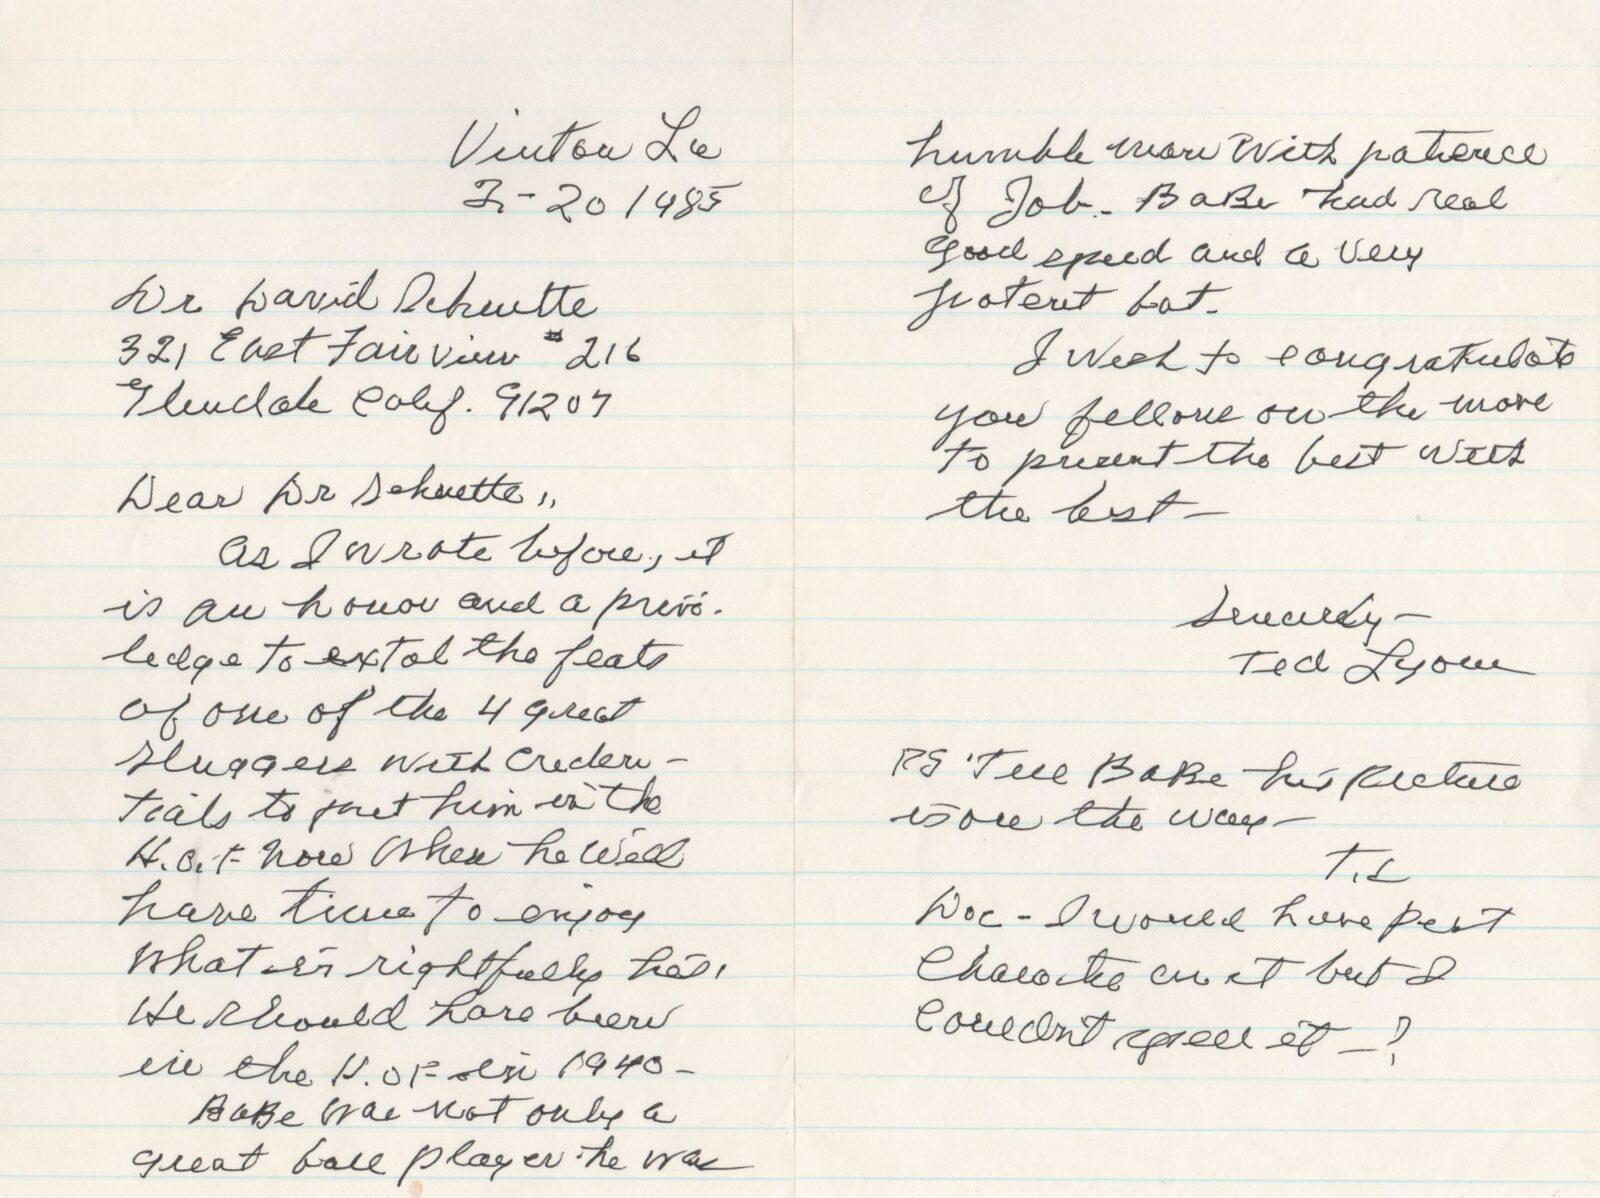 Vinton La
2-20 1985
Dr David Schuette
321 East Fairview #216
Glendale Calif. 91207
Dear Dr Schuette,,
As I wrote before, it
is an honor and a privi-
ledge to extol the feats
of one of the 4 great
sluggers with creden-
tials to put him in the
H.o.F now when he will
have time to enjoy
what is rightfully his,
He should have been
in the H.OF in 1940-
BaBe was not only a
great ball player he was
humble man with patience
of Job- BaBe had real
good speed and a very
potent bat.
I wish to congratulate
you fellows on the move
to present the best with
the best-
Sincerely-
Ted Lyons
PS Tell BaBe his picture
is on the way-
T.L
Doc- I would have put
on it but I
Couldn't spell it-?